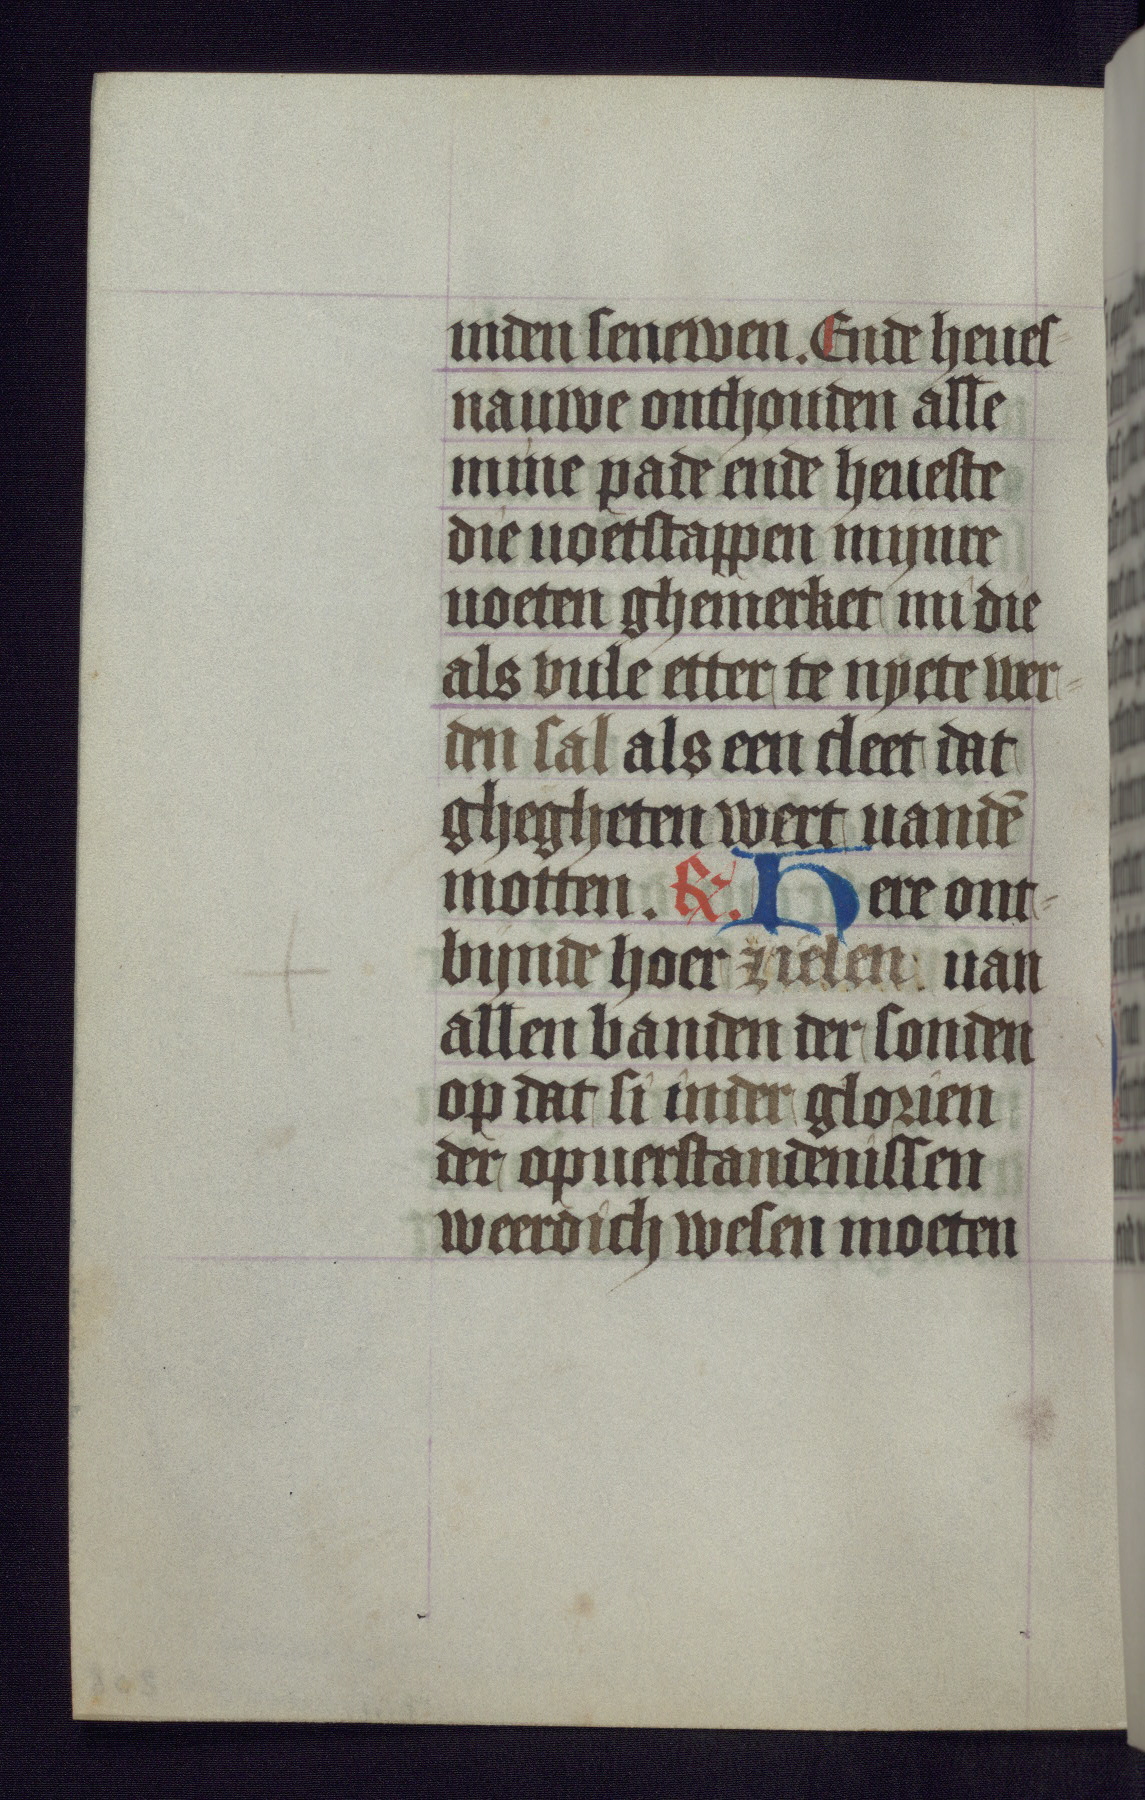 inden senewen. Ende heues-
nauwe onthouden alle
mine pade ende heueste
die uoetstappen mijnre
uoeten ghemerket mi die
als vule etter te nyete wer-
den sal als een cleet dat
ghegheten wert uandē
motten. R. Here ont-
bijnde hoer zielen: uan
allen banden der sonden
op dat si inder glorien
der opuerstandenissen
weerdich wesen moeten